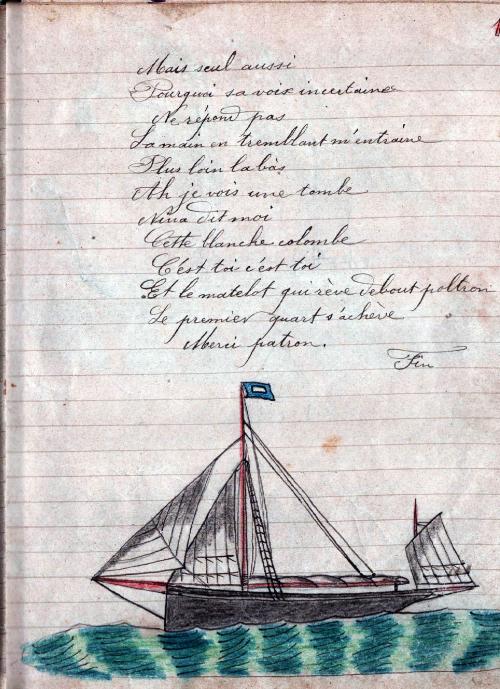 Mais seul aussi
Pourquoi sa voix incertaine
Ne répond pas
La main en tremblant m'entraine
Plus loin labàs
Ah je vois une tombe
Nina dit moi
Cette blanche colombe
C'est toi c'est toi
Et le matelot qui rève debout poltron
Le premier quart s'achève
Merci patron.
Fin